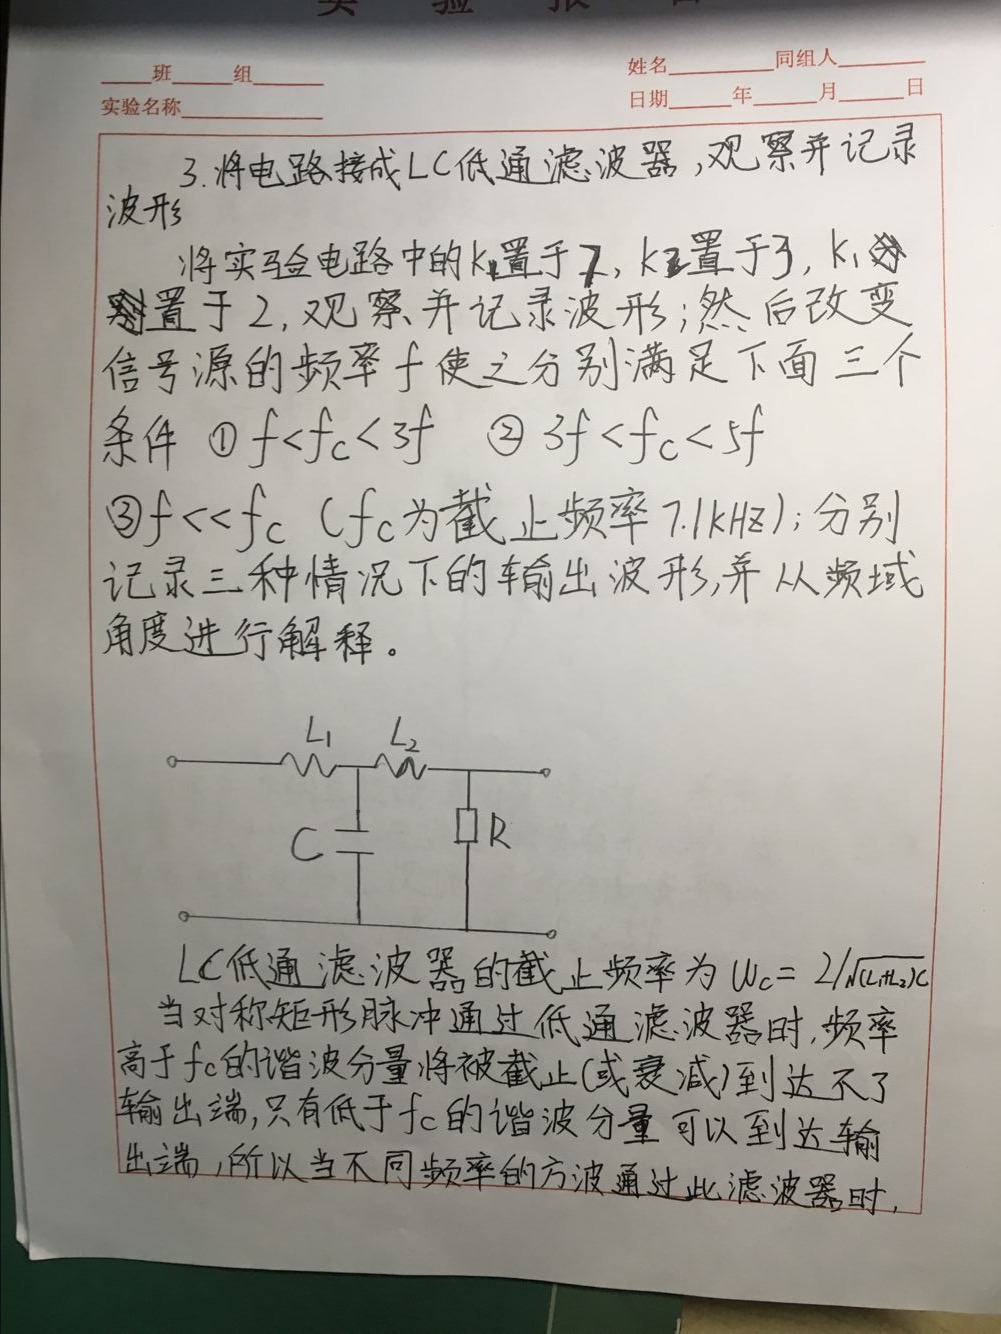 实 验 报 告
班 组 姓名 同组人
实验名称 日期 年 月 日
3.将电路接成LC低通滤波器,观察并记录
波形
将实验电路中的K 置于 , K2置于3, K1
置于2,观察并记录波形;然后改变
信号源的频率f使之分别满足下面三个
条件 ① f<fc<3f ② 3f<fc<5f
③f<<fc (fc为截止频率7.1kHz);分别
记录三种情况下的输出波形,并从频域
角度进行解释。
L1 L2
C R
LC低通滤波器的截止频率为 Wc= 2/√(L1+L2)C
当对称矩形脉冲通过低通滤波器时,频率
高于fc的谐波分量将被截止(或衰减)到达不了
输出端,只有低于fc的谐波分量可以到达输
出端,所以当不同频率的方波通过此滤波器时,